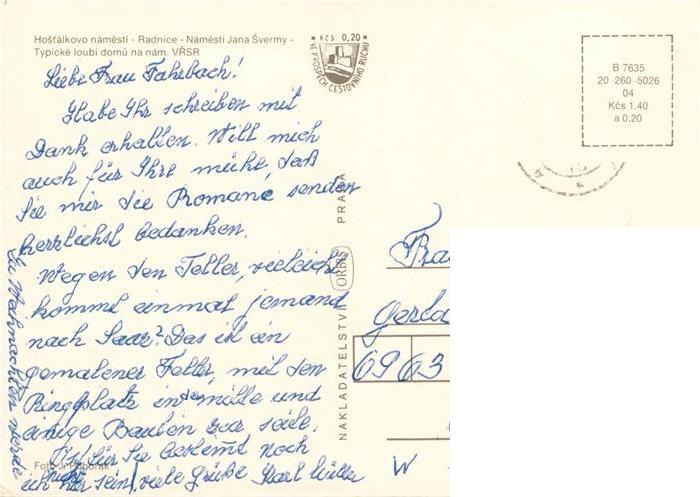 Hošťálkovo náměstí - Radnice - Náměstí Jana Švermy -
Typické loubí domů na nám. VŘSR
KČS 0,20
VE PROSPĚCH CESTOVNÍHO RUCHU
B 7635
20-260-5026
04
Kčs 1,40
a 0,20
Liebe Frau Fahrbach!
Habe Ihr schreiben mit
Dank erhalten. Will mich
auch für Ihre mühe, daß
Sie mir die Romane senden
herzlichst bedanken.
Wegen den Teller, vieleicht
kommt einmal jemand
nach Saaz? Das ist ein
gemalener Teller, mit den
Ringplatz in der mitte und
einige Bauten zur seite.
Ist für Sie bestimt noch
ich hier sein, viele Grüße Karl
Zu Weihnachten werde
nicht
NAKLADATELSTVÍ ORBIS PRAHA
Frau
Gerda
6963
W